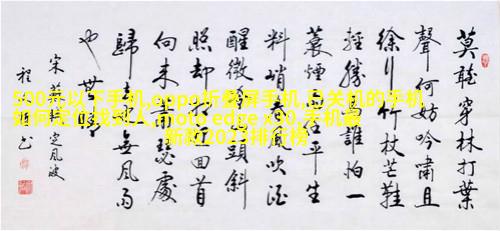 500元以下手机,oppo折叠屏手机,已关机的手机
如何定位找别人,moto edge x30,手机最
新款2023排行榜
莫聽穿林打葉
聲何妨吟嘯且
徐行竹杖芒鞋
輕勝馬誰怕一
蓑煙雨任平生
料峭春風吹酒
醒微冷山頭斜
照却相迎回首
向来蕭瑟處
歸去也無風雨
也無
宋蘇軾定風波
程